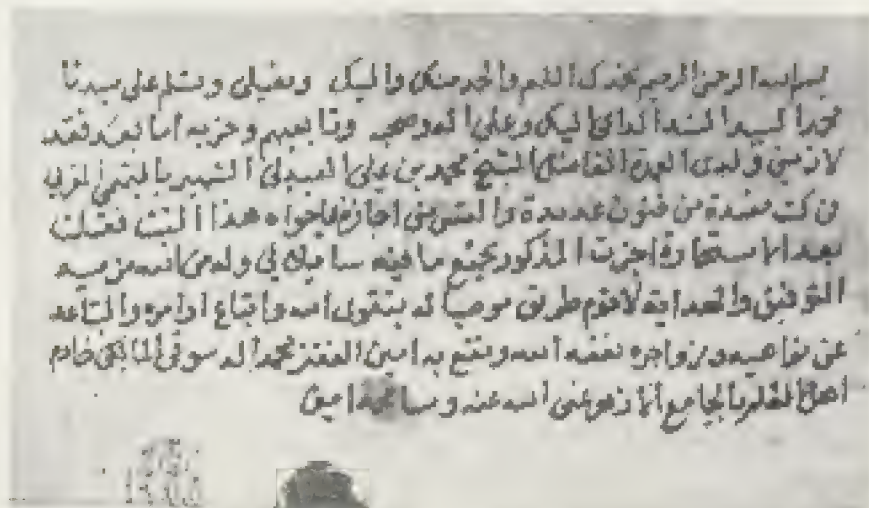 بسم الله الرحمن الرحيم نحمدك اللهم والحمد منك واليك ونصلي ونسلم على سيدنا
محمد السيد السند الداعي اليك وعلى اله وصحبه وتابعيهم وحزبه اما بعد فقد
لازمني ولدي الفاضل الشيخ محمد بن علي الشهير
من كتب عديدة من فنون عديدة والتمس مني اجازة بما حواه هذا الثبت فقلت
بعد الاستخارة اجزت المذكور بجميع ما فيه سائلا لي وله من الله مزيد
التوفيق والهداية لاقوم طريق موصيا له بتقوى الله واتباع اوامره والتباعد
عن نواهيه وزواجره نفعه الله ونفع به امين الفقير محمد الدسوقي المالكي خادم
اهل العلم بالجامع الازهر عفى الله عنه وسامحه امين